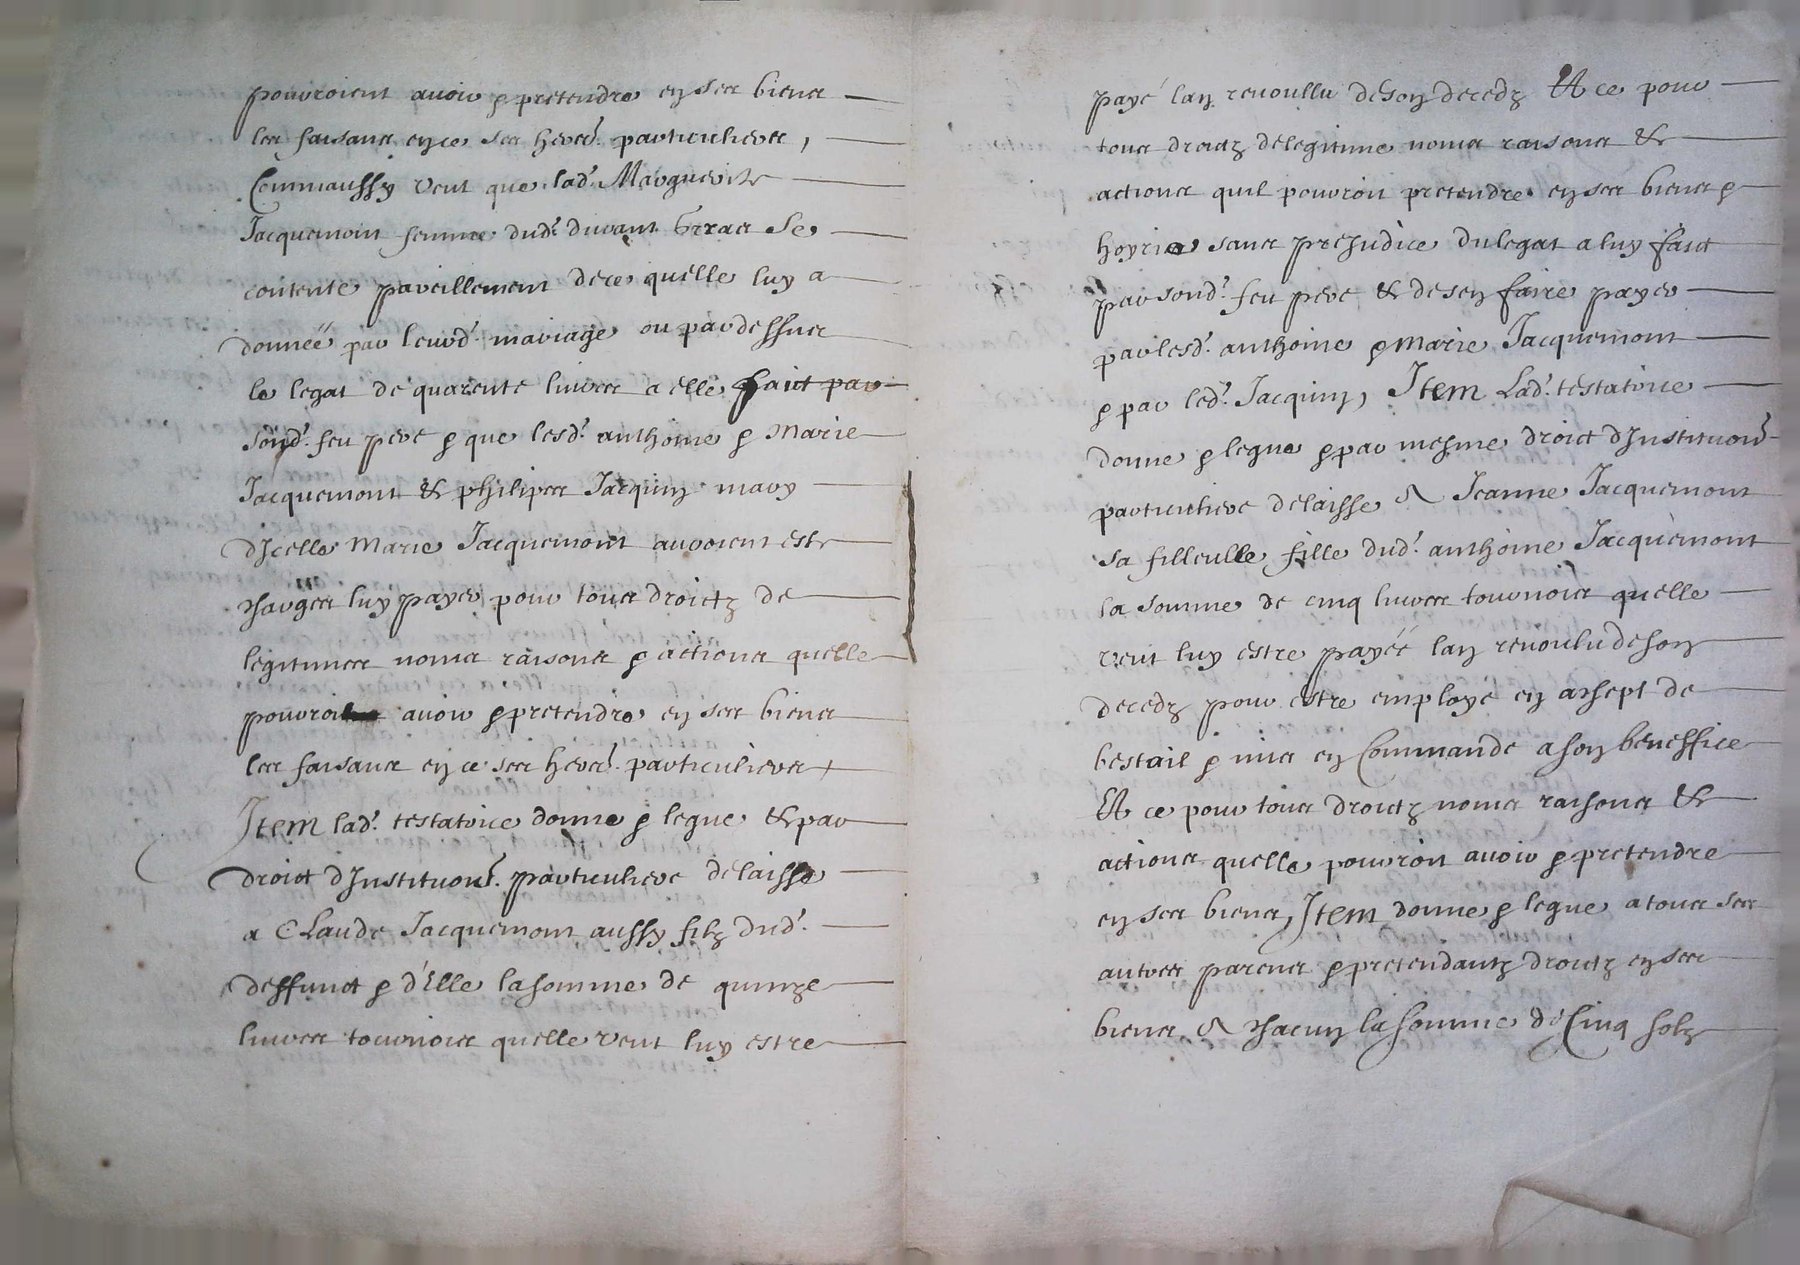 pouvroient avoir & pretendre en ses biens
les faisans en ce ses hers. particuliers,
Comm aussy veut que lad. Marguerite
Jacquemont femme dud. durant Grras se
contente pareillement de ce quelle luy a
donnéé par leurd. mariage ou par dessus
le legat de quarente livres a elle faict par
sond. feu pere & que lesd. anthoine & Marie
Jacquemont & philipes Jacquin mary
d'Icelle Marie Jacquemont auroient esté
charges luy payer pour tous droictz de
legitimes noms raisons & actions quelle
pouvroit avoir & pretendre en ses biens
les faisans en ce ses hers. particuliers
Item lad. testatrice donne & legue & par
droict d'Institution. particuliere delaisse
a Claude Jacquemont aussy filz dud.
deffunct & d'Elle la somme de quinze
livres tournois quelle veut luy estre
payé lan revoullu de son decedz Et ce pour
tous droictz de legitime noms raisons &
actions quil pouvroit pretendre en ses biens &
hoyrie sans prejudice du legat a luy faict
par sond. feu pere & de sen faire payer
par lesd. anthoine & Marie Jacquemont
& par led. Jacquin, Item Lad. testatrice
donne & legue & par mesme droict d'Institution
particuliere delaisse a Jeanne Jacquemont
sa filleulle fille dud. anthoine Jacquemont
la somme de cinq livres tournois quelle
veut luy estre payéé lan revoulu de son
decedz pour estre employé en achept de
bestail & mis en Commande a son beneffice
Et ce pour tous droictz noms raisons &
actions quelle pouvroit avoir & pretendre
en ses biens, Item donne & legue a tous ses
autres parens & pretendantz droictz en ses
biens a chacun la somme de Cinq solz